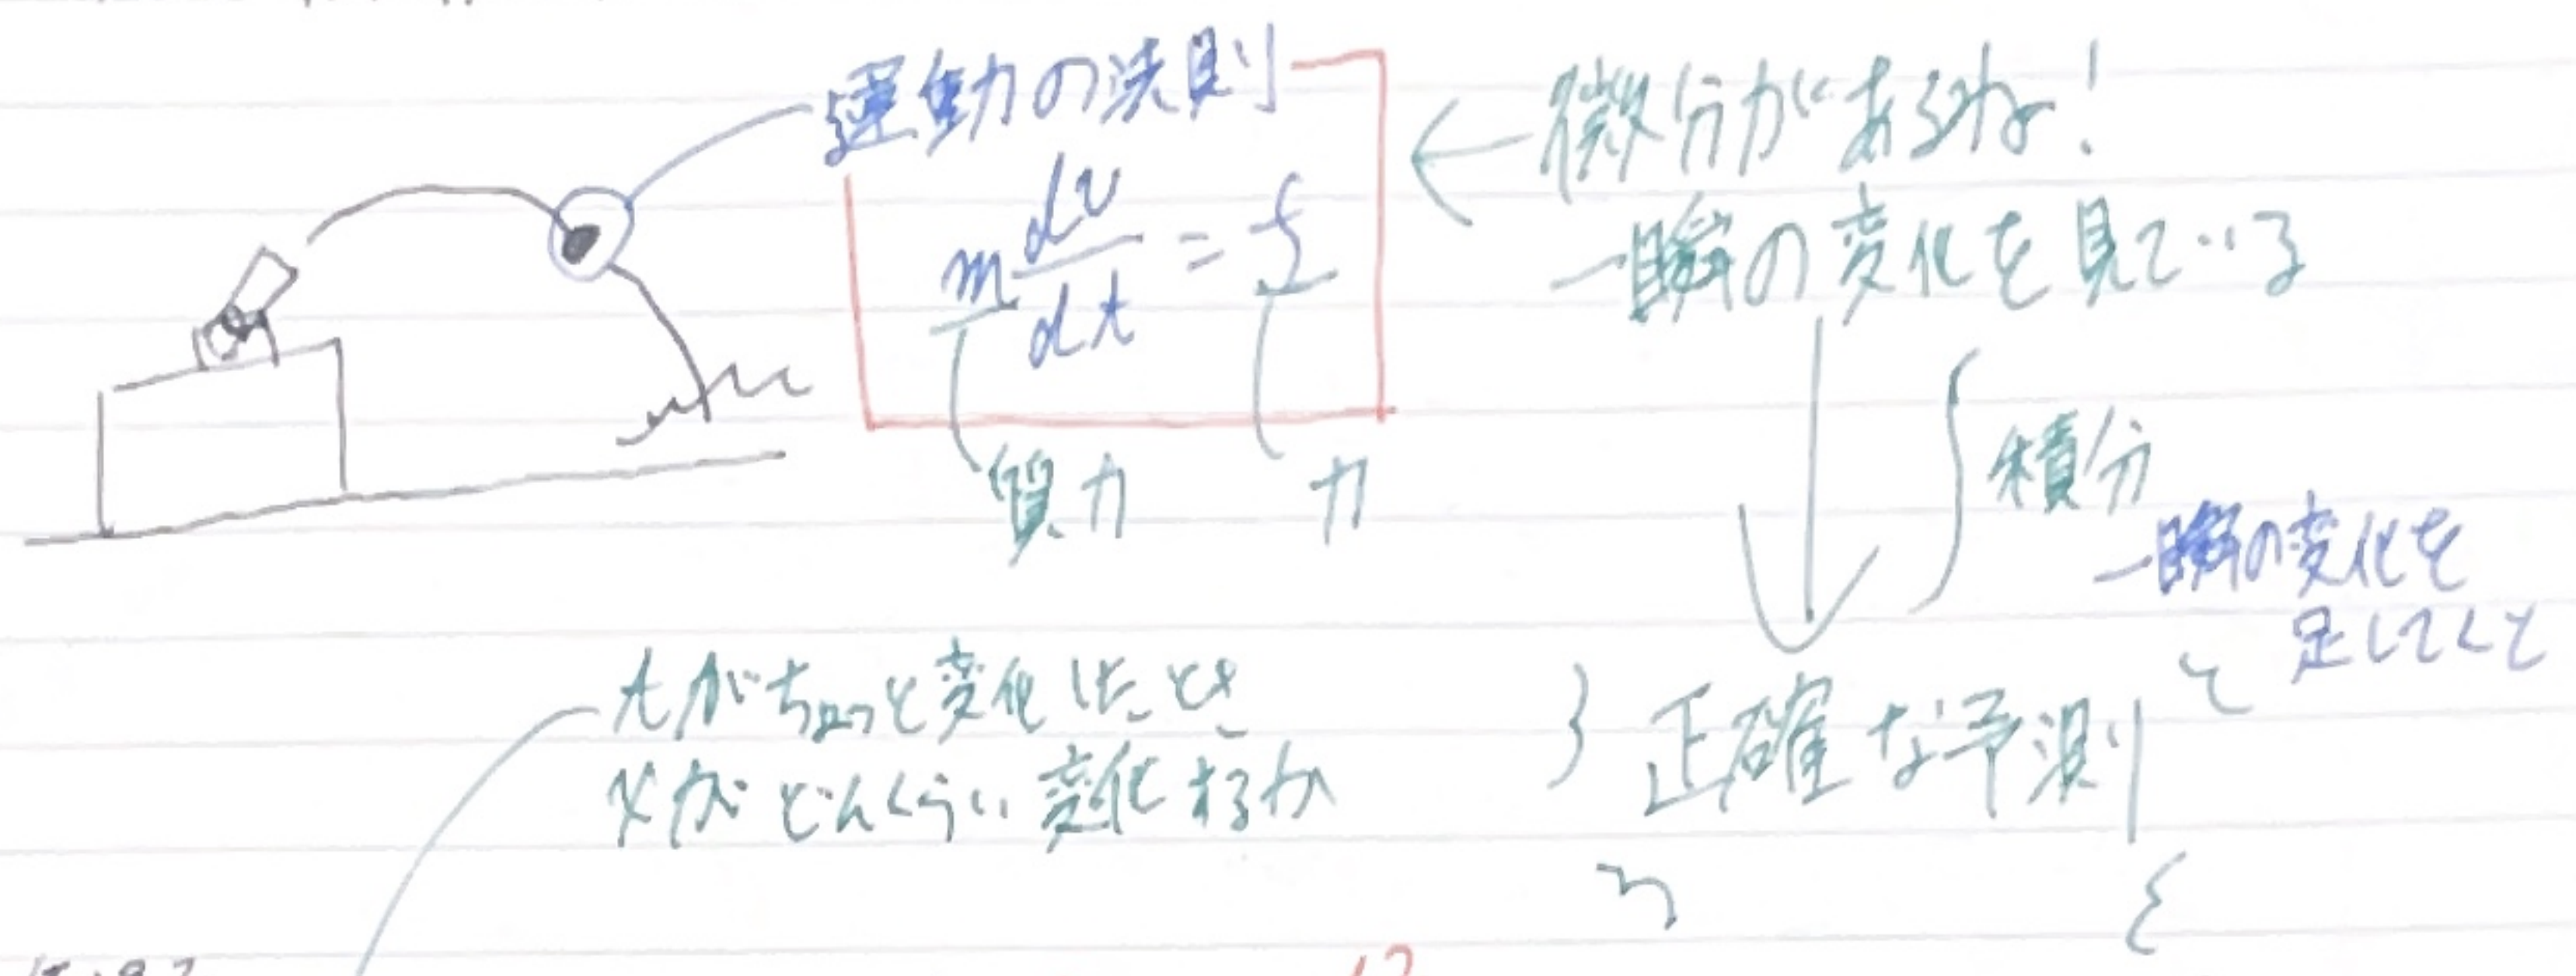 運動の法則
m dv/dt = f
質力
力
← 微分があるね!
一瞬の変化を見ている
∫ 積分
一瞬の変化を
足してくと
正確な予測
tがちょっと変化したとき
xがどんくらい変化するか